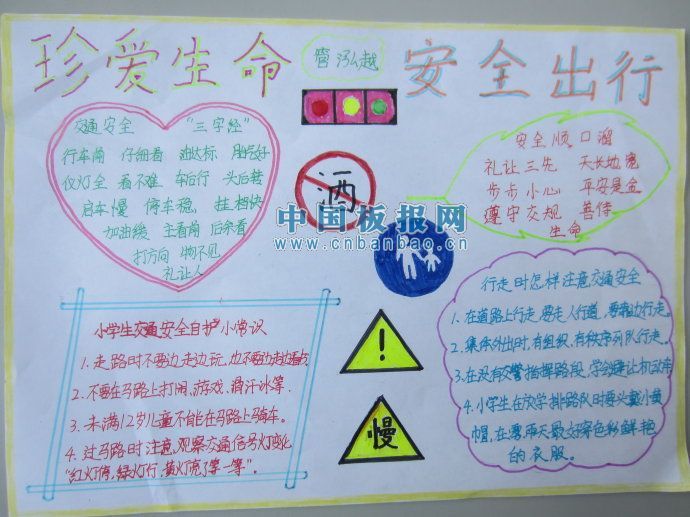 珍爱生命
管泓越
安全出行
交通安全 "三字经"
行车前 仔细看 油达标 胎气好
仪灯全 看不难 车后行 头后转
启车慢 停车稳 挂档快
加油缓 主看前 后余看
打方向 物不见
礼让人
酒
安全顺口溜
礼让三先 天长地宽
步步小心 平安是金
遵守交规 善待
生命
中国板报网
www.cnbanbao.cn
小学生交通安全自护小常识
1、走路时不要边走边玩,也不要边走边看书
2、不要在马路上打闹、游戏、滑汗冰等.
3、未满12岁儿童不能在马路上骑车。
4、过马路时注意,观察交通信号灯变化
"红灯停,绿灯行,黄灯亮了等一等"。
!
慢
行走时怎样注意交通安全
1.在道路上行走,要走人行道,要靠边行走。
2.集体外出时,有组织、有秩序列队行走。
3.在没有交警指挥路段,学会避让机动车
4.小学生在放学排路队时要头戴小黄
帽,在雾雨天最好穿色彩鲜艳
的衣服。